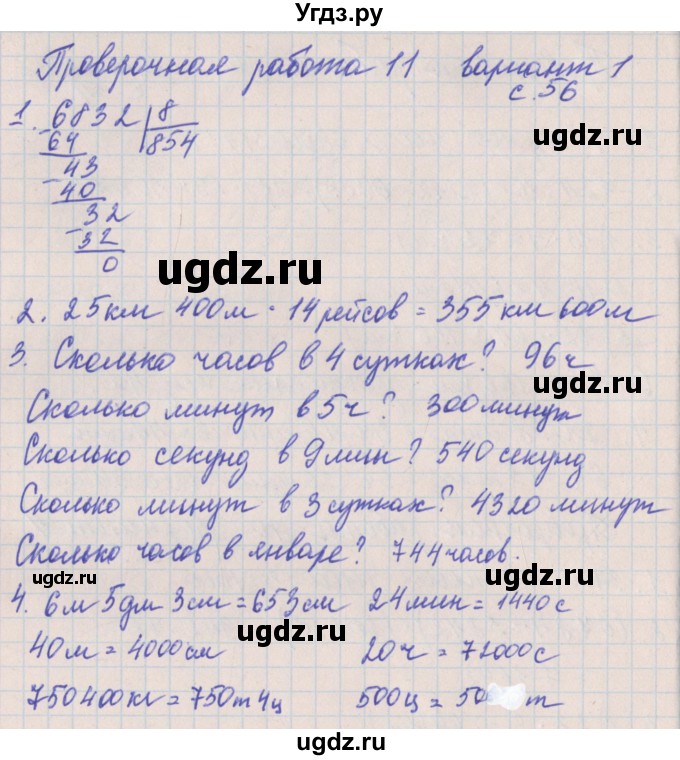 Угдз.ру
Проверочная работа 11 вариант 1
с. 56
1. 6832 8
64 854
43
40
32
32
0
ugdz.ru
ugdz.ru
2. 25 км 400 м · 14 рейсов = 355 км 600 м
3. Сколько часов в 4 сутках? 96 ч
ugdz.ru
Сколько минут в 5 ч? 300 минут
Сколько секунд в 9 мин? 540 секунд
Сколько минут в 3 сутках? 4320 минут
Сколько часов в январе? 744 часов.
ugdz.ru
ugdz.ru
4. 6 м 5 дм 3 см = 653 см 24 мин = 1440 с
ugdz.ru
40 м = 4000 см 20 ч = 72000 с
750400 кг = 750 т 4 ц 500 ц = 50 т
ugdz.ru
ugdz.ru